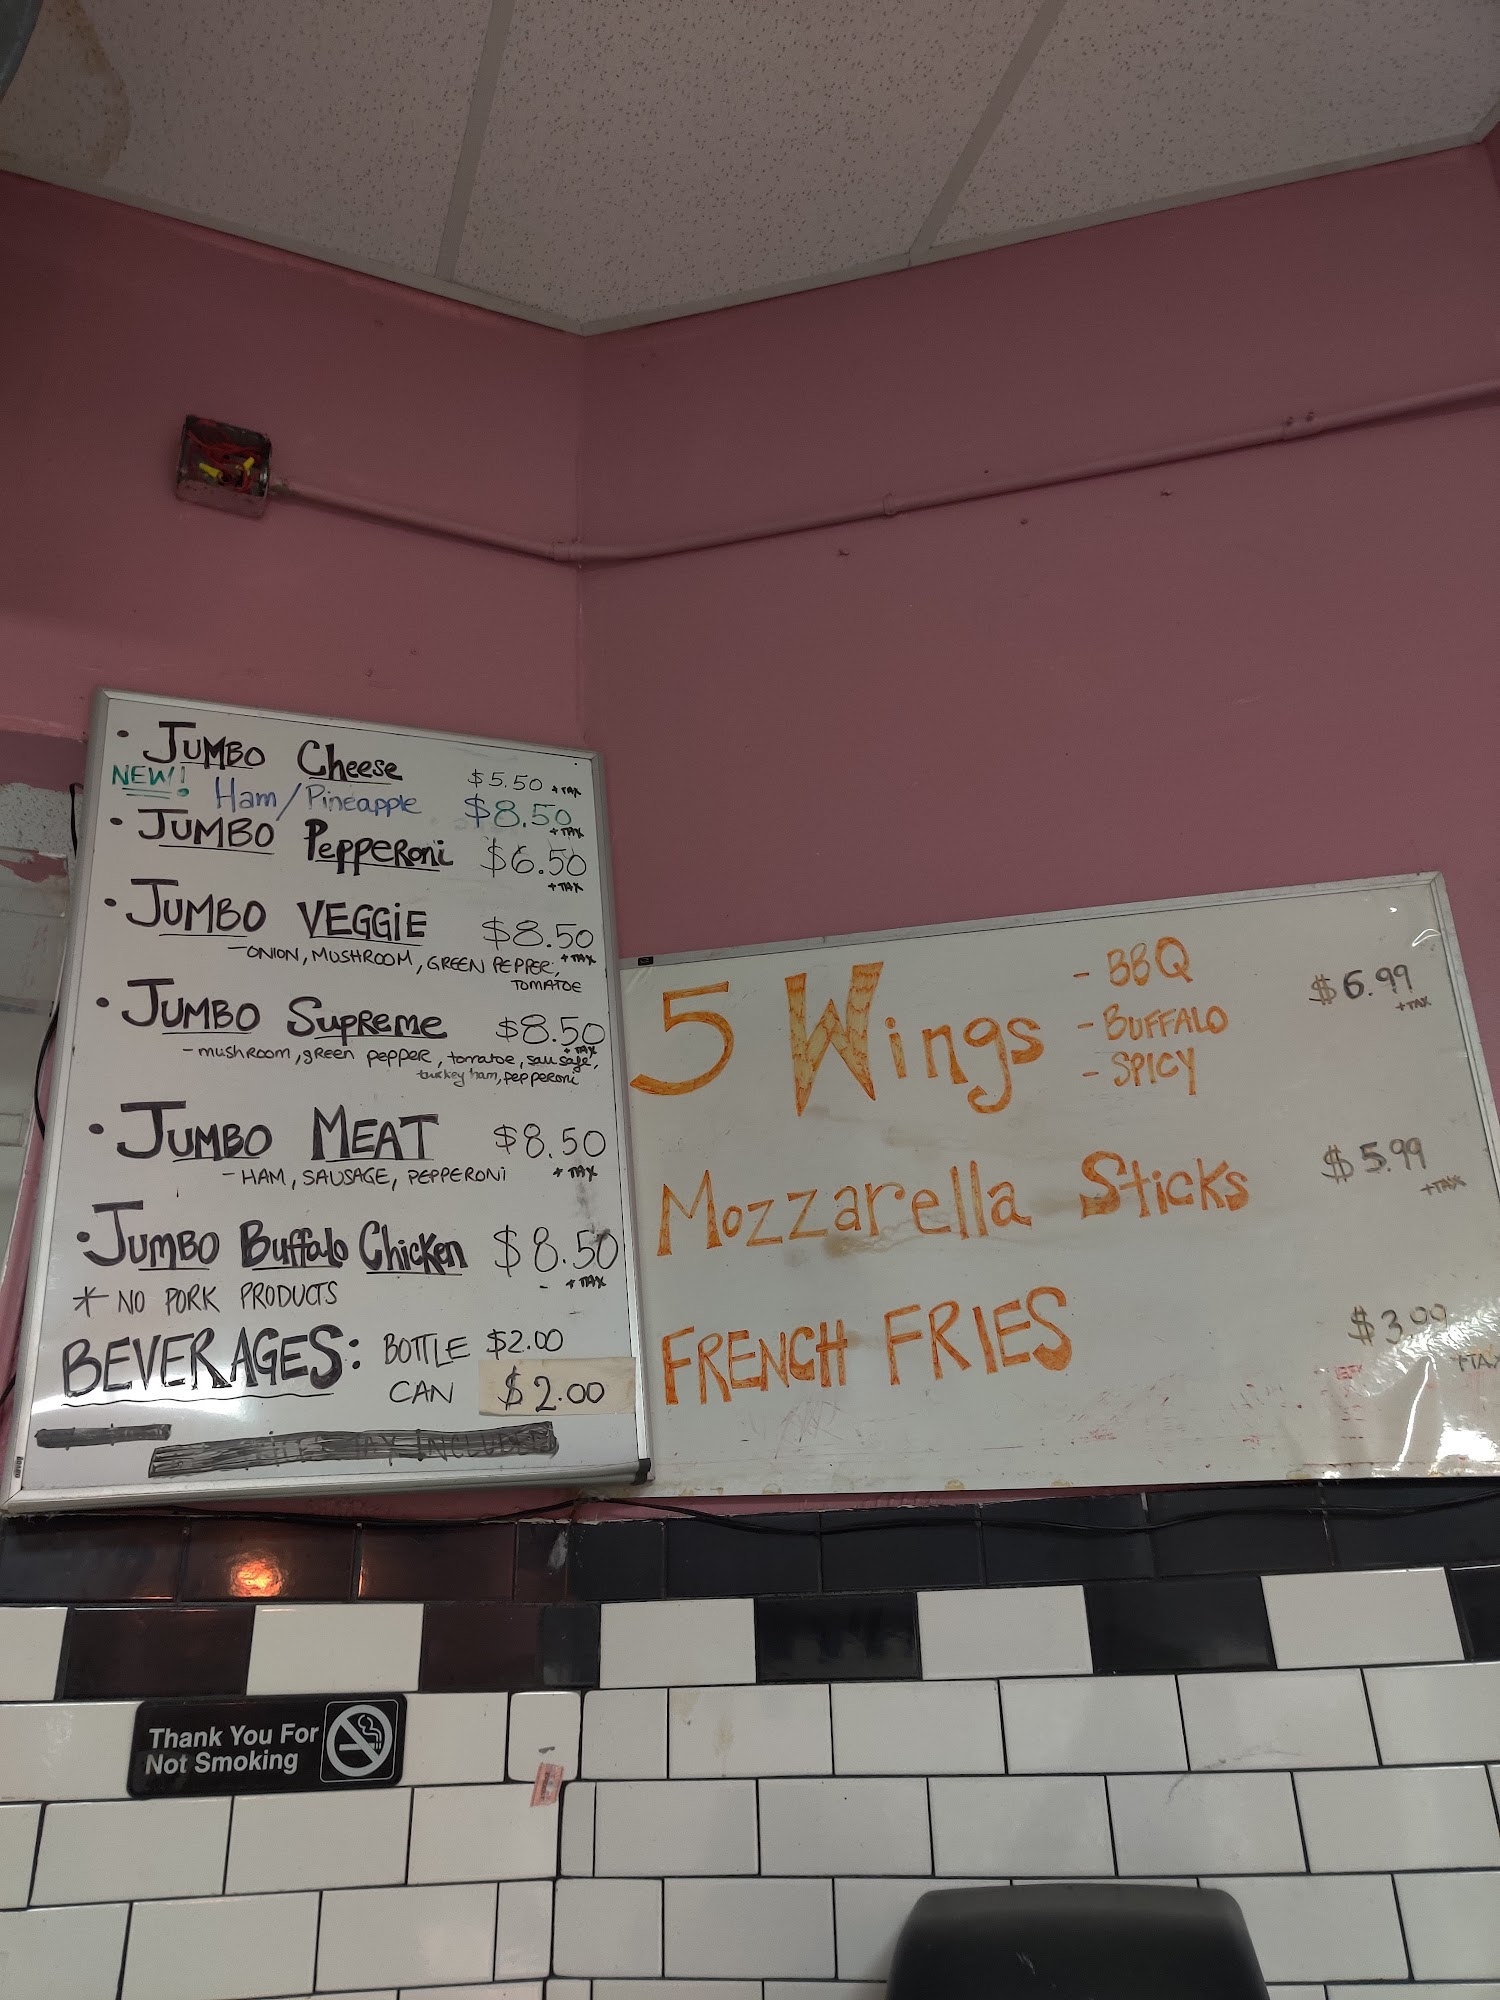 • JUMBO Cheese $5.50 + TAX
NEW! Ham/Pineapple $8.50 + TAX
• JUMBO PePPeRoni $6.50 + TAX
• JUMBO VEGGiE $8.50 + TAX
- ONION, MUSHROOM, GREEN PEPPER,
TOMATOE
• JUMBO SuPReMe $8.50 + TAX
- mushroom, green pepper, tomatoe, sausage,
turkey ham, pepperoni
• JUMBO MEAT $8.50 + TAX
- HAM, SAUSAGE, PEPPERONI
• JUMBO Buffalo Chicken $8.50 + TAX
* NO PORK PRODUCTS
BEVERAGES: BOTTLE $2.00
CAN $2.00
TAX INCLUDED
5 Wings - BBQ $6.99 + TAX
- BUFFALO
- SPICY
Mozzarella Sticks $5.99 + TAX
FRENCH FRIES $3.99 + TAX
Thank You For
Not Smoking